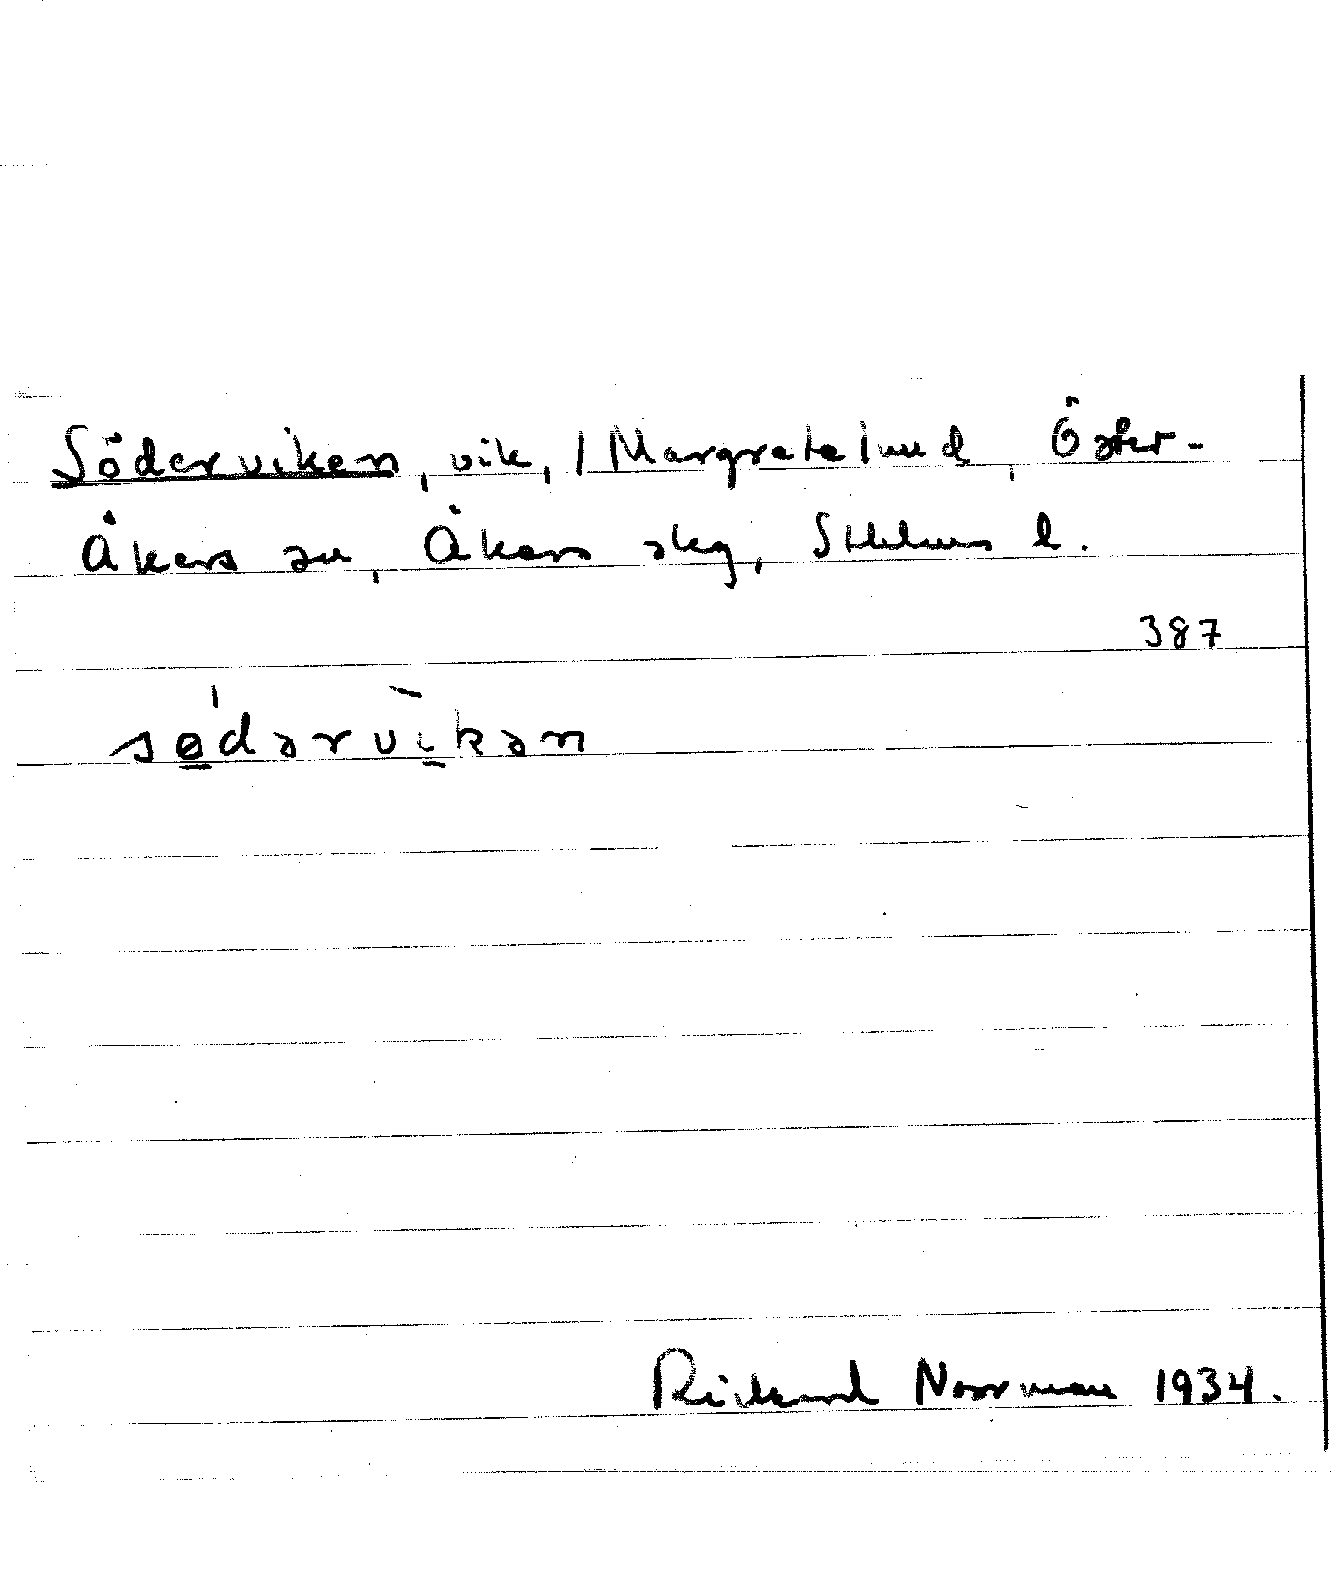 Söderviken, vik, / Margretelund, Öster-
Åkers sn, Åkers skg, Sthlms l.
387
sǿ̲dərvī̲kən
Rickard Norrman 1934.